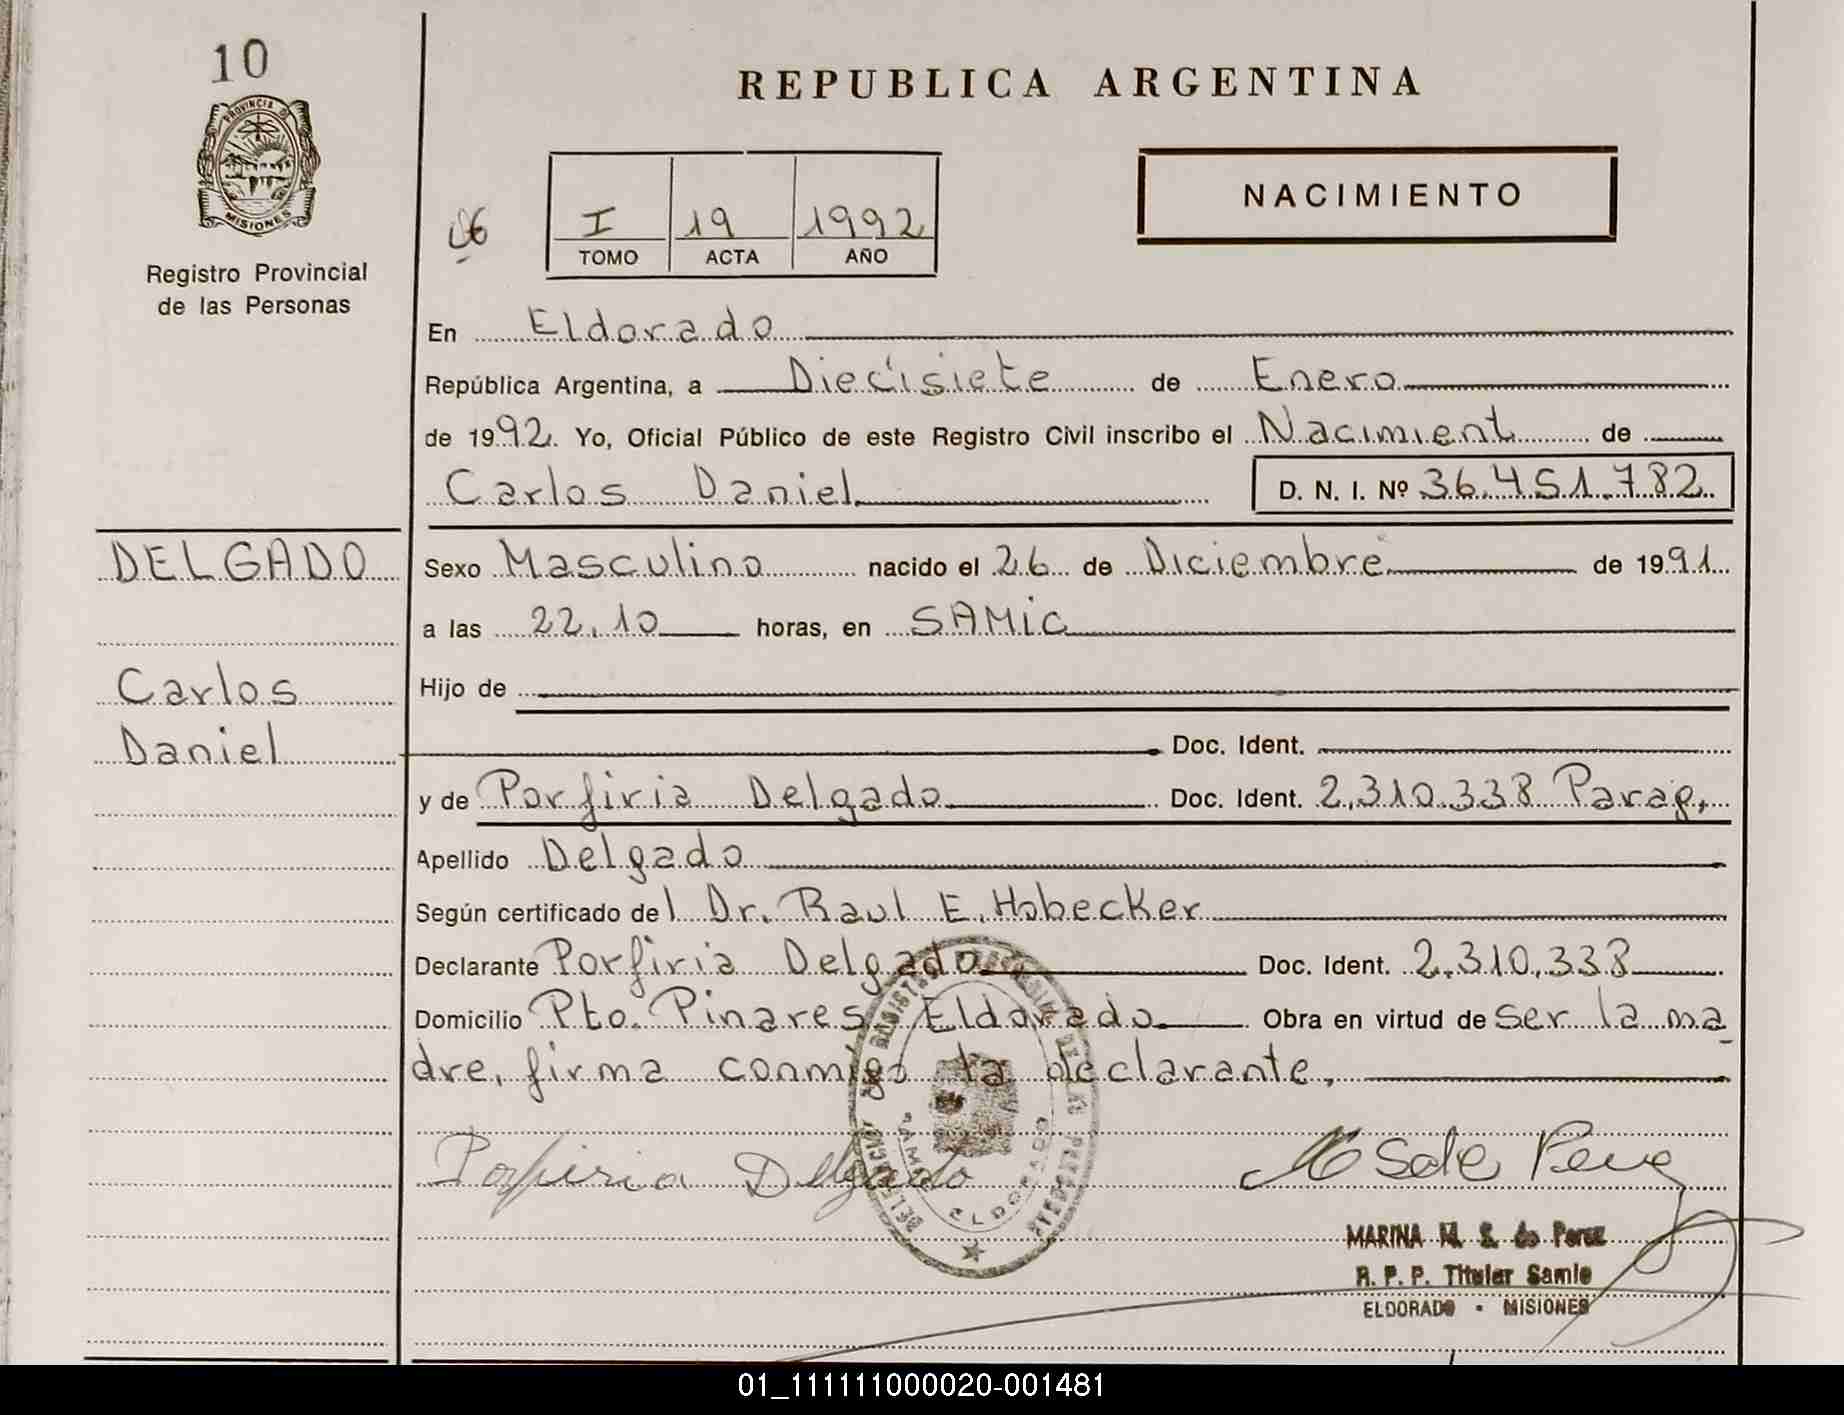 10
PROVINCIA D
MISIONES
Registro Provincial
de las Personas
REPUBLICA ARGENTINA
NACIMIENTO
06
I 19 1992
TOMO ACTA AÑO
En Eldorado
República Argentina, a Diecisiete de Enero
de 1992. Yo, Oficial Público de este Registro Civil inscribo el Nacimient de
Carlos Daniel D. N. I. Nº 36.451.782
DELGADO
Carlos
Daniel
Sexo Masculino nacido el 26 de Diciembre de 1991
a las 22,10 horas, en SAMIC
Hijo de
Doc. Ident.
y de Porfiria Delgado Doc. Ident. 2.310.338 Parag.
Apellido Delgado
Según certificado del Dr. Raul E. Hobecker
Declarante Porfiria Delgado Doc. Ident. 2.310.338
Domicilio Pto. Pinares Eldorado Obra en virtud de ser la ma
dre, firma conmigo la declarante,
Porfiria Delgado
ELDORADO
MARINA M. S. de Perez
R. P. P. Titular Samic
ELDORADO - MISIONES
01_111111000020-001481